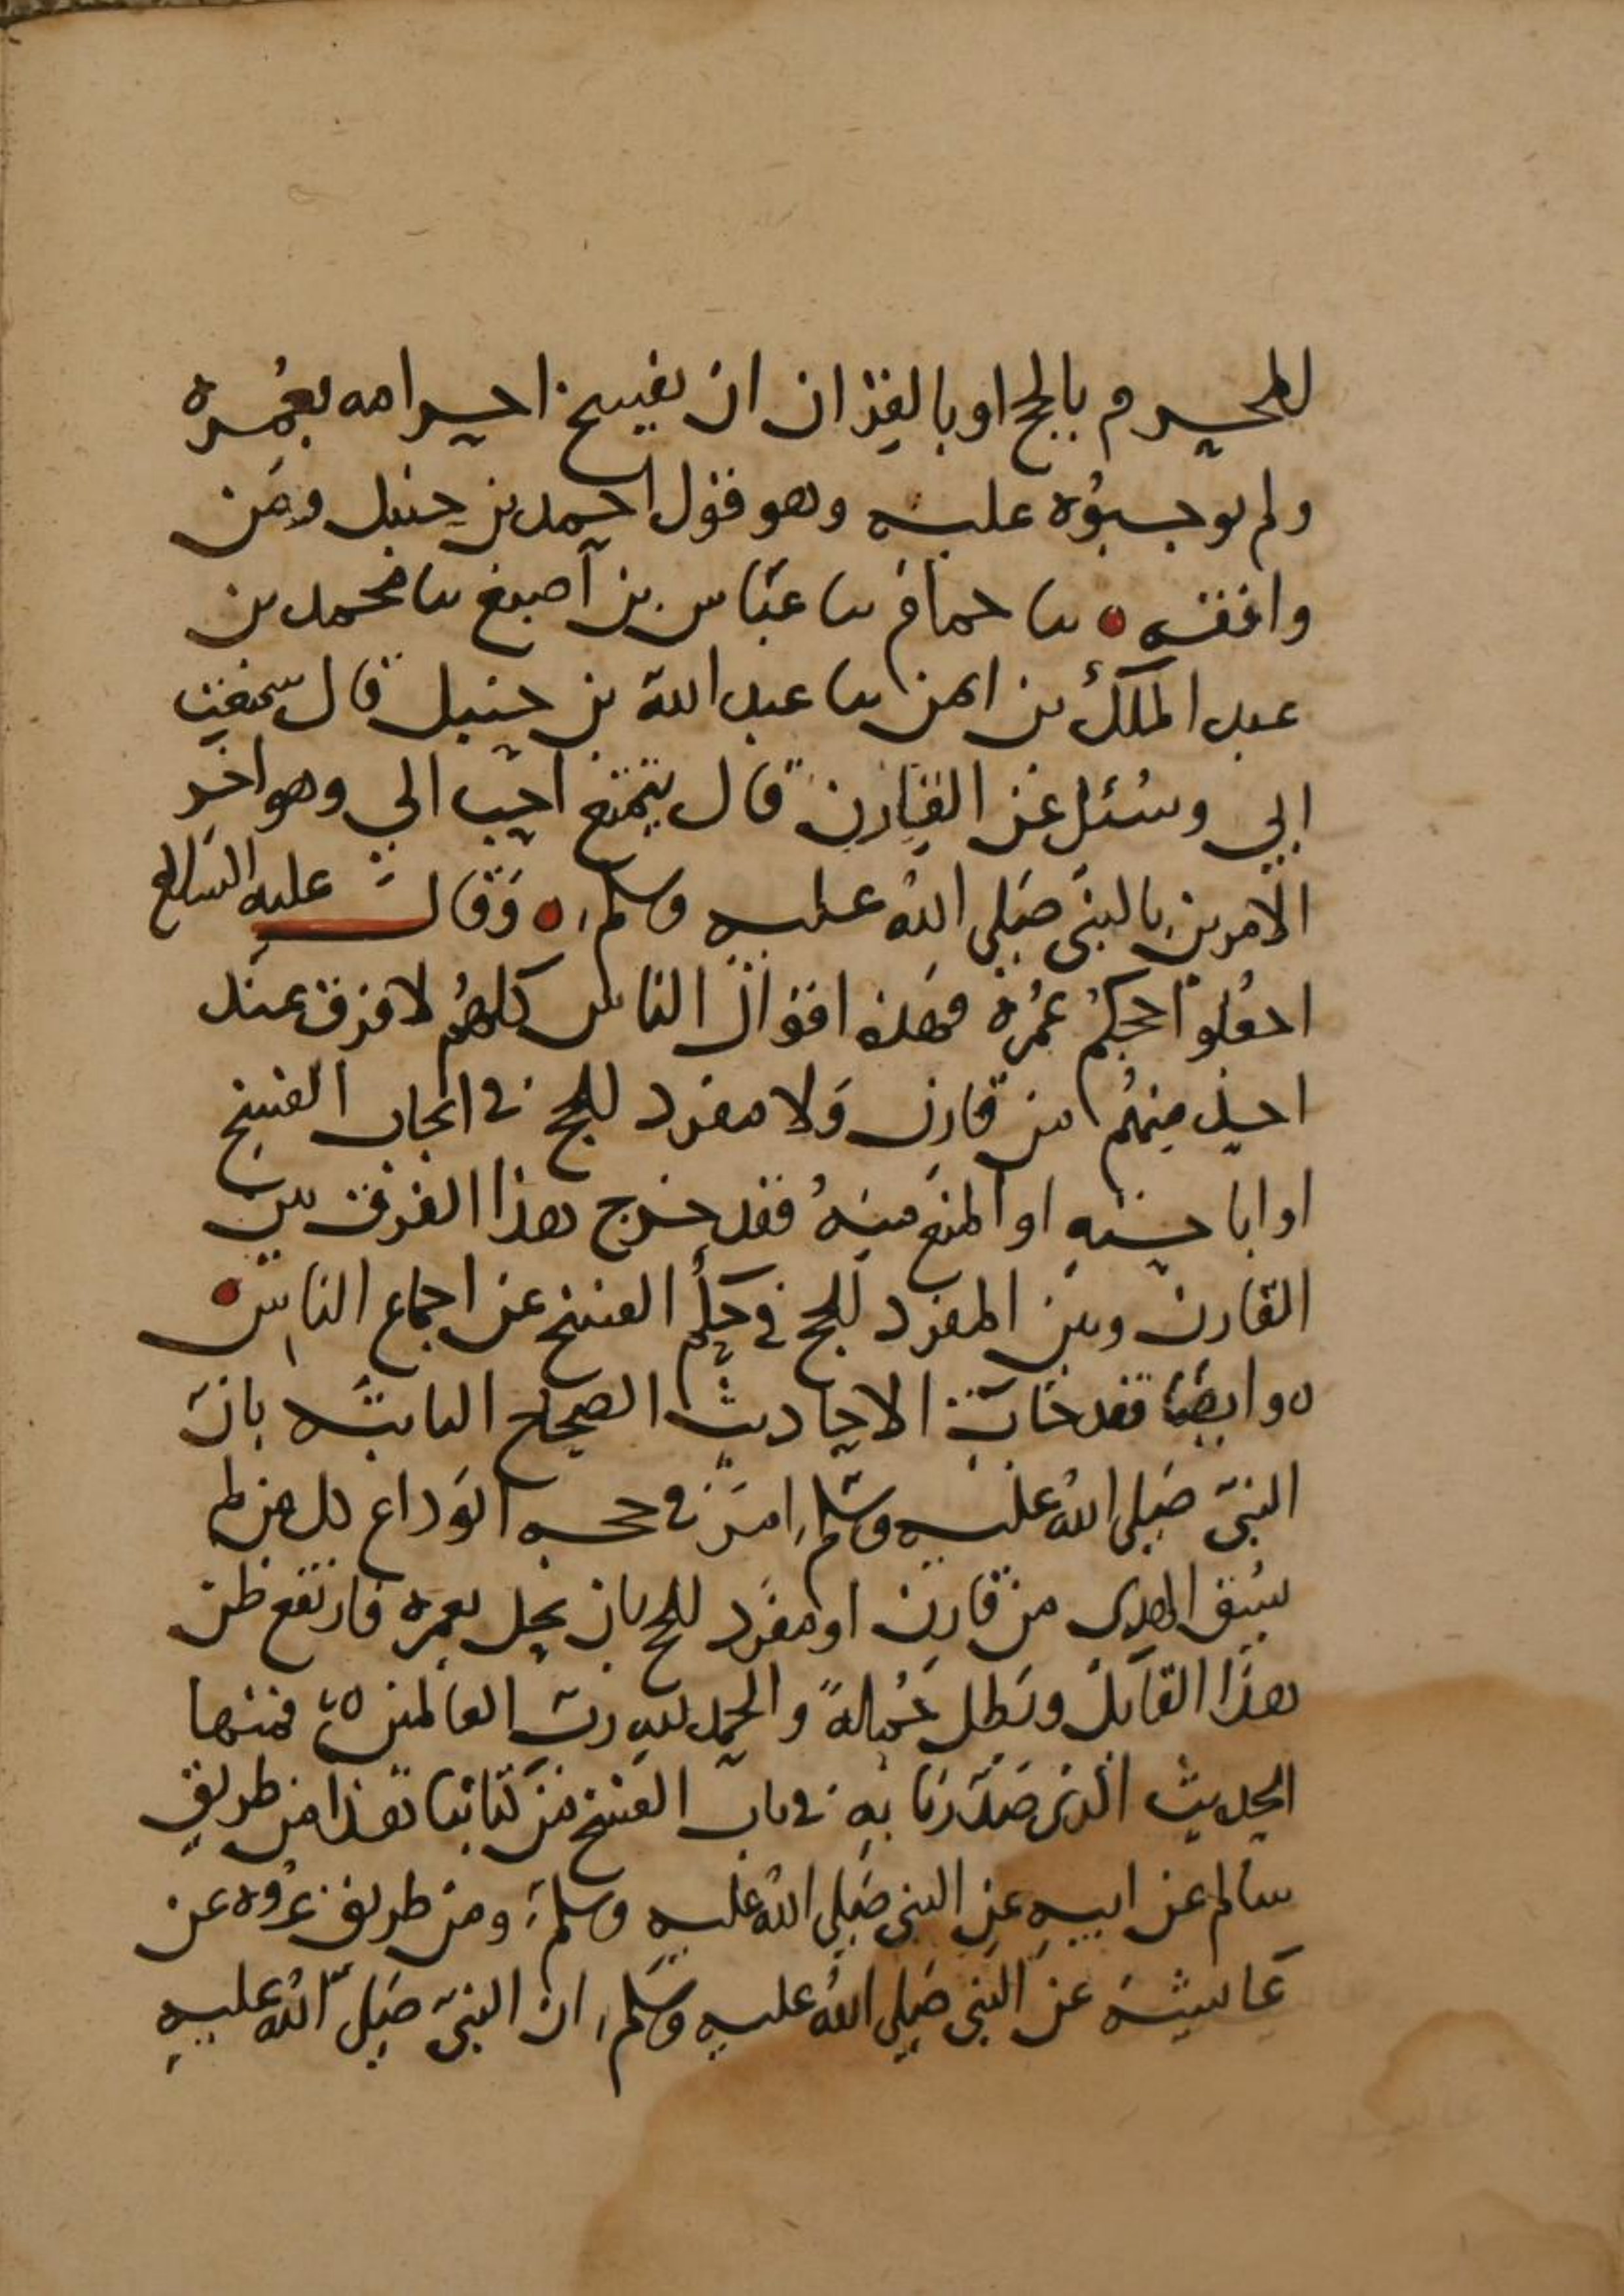 للمحرم بالحج او بالقران ان يفسخ احرامه بعمرة
ولم يوجبوه عليه وهو قول احمد بن حنبل ومن
وافقه ٥ نا حمام نا عباس بن اصبغ نا محمد بن
عبد الملك بن ايمن نا عبد الله بن حنبل قال سمعت
ابي وسئل عن القارن قال يتمتع احب الي وهو اخر
الامرين بالنبي صلى الله عليه وسلم ٥ وقال عليه السلام
اجعلوا حجكم عمرة فهذه اقوال الناس كلهم لا فرق عند
احد منهم من قارن ولا مفرد للحج في ايجاب الفسخ
او اباحته او المنع منه فقد خرج هذا الفرق بين
القارن وبين المفرد للحج في حكم الفسخ عن اجماع الناس ٥
٥ وايضا فقد جات الاحاديث الصحاح الثابتة بان
النبي صلى الله عليه وسلم امر في حجة الوداع كل من لم
يسق الهدى من قارن او مفرد للحج بان يحل بعمرة فارتفع ظن
هذا القايل وبطل جملة والحمد لله رب العالمين ٥ فمنها
الحديث الذي صدرنا به في باب الفسخ من كتابنا هذا من طريق
سالم عن ابيه عن النبي صلى الله عليه وسلم ومن طريق عروة عن
عايشة عن النبي صلى الله عليه وسلم ان النبي صلى الله عليه